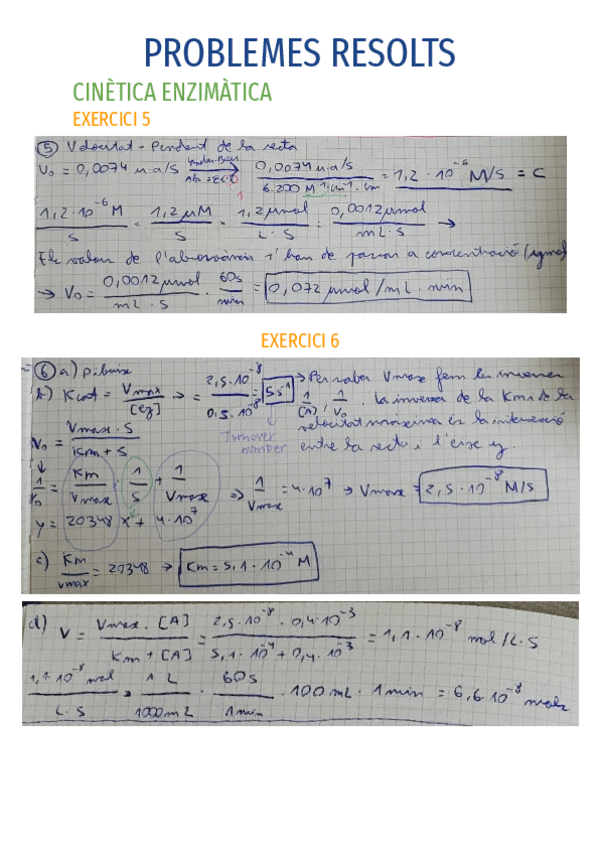 PROBLEMES RESOLTS
CINÈTICA ENZIMÀTICA
EXERCICI 5
⑤ Velocitat = Pendent de la recta
V₀ = 0,0074 u.a/s → 0,0074 u.a/s / 6.200 M⁻¹cm⁻¹ · cm = 1,2 · 10⁻⁶ M/s = C
1,2·10⁻⁶ M / s = 1,2 μM / s = 1,2 μmol / L·s = 0,0012 μmol / mL·s →
Els valors de l'absorbància s'han de passar a concentració
→ V₀ = 0,0012 μmol / mL·s · 60s / min = 0,072 μmol/mL·min
EXERCICI 6
⑥ a)
b) Kcat = Vmax / [ez] → = 2,5·10⁻⁸ / 0,5·10⁻⁸ = 5 s⁻¹ → Per saber Vmax fem la inversa
1/[A] , 1/V₀ . La inversa de la Km i de la
velocitat màxima és la intersecció
Turnover number
entre la recta i l'eix y.
V₀ = Vmax · S / Km + S
1/V₀ = Km/Vmax · 1/S + 1/Vmax ⇒ 1/Vmax = 4·10⁷ → Vmax = 2,5·10⁻⁸ M/s
y = 20348 x + 4·10⁷
c) Km/Vmax = 20348 → Km = 5,1·10⁻⁴ M
d) V = Vmax · [A] / Km + [A] = 2,5·10⁻⁸ · 0,4·10⁻³ / 5,1·10⁻⁴ + 0,4·10⁻³ = 1,1·10⁻⁸ mol/L·s
1,1·10⁻⁸ mol / L·s · 1 L / 1000 mL · 60s / 1 min · 100 mL · 1 min = 6,6·10⁻⁸ mols